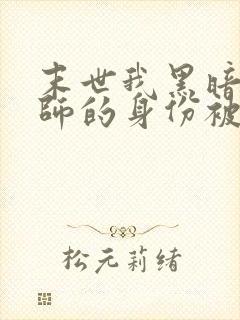 末世我黑暗
师的身份被
松元莉绪